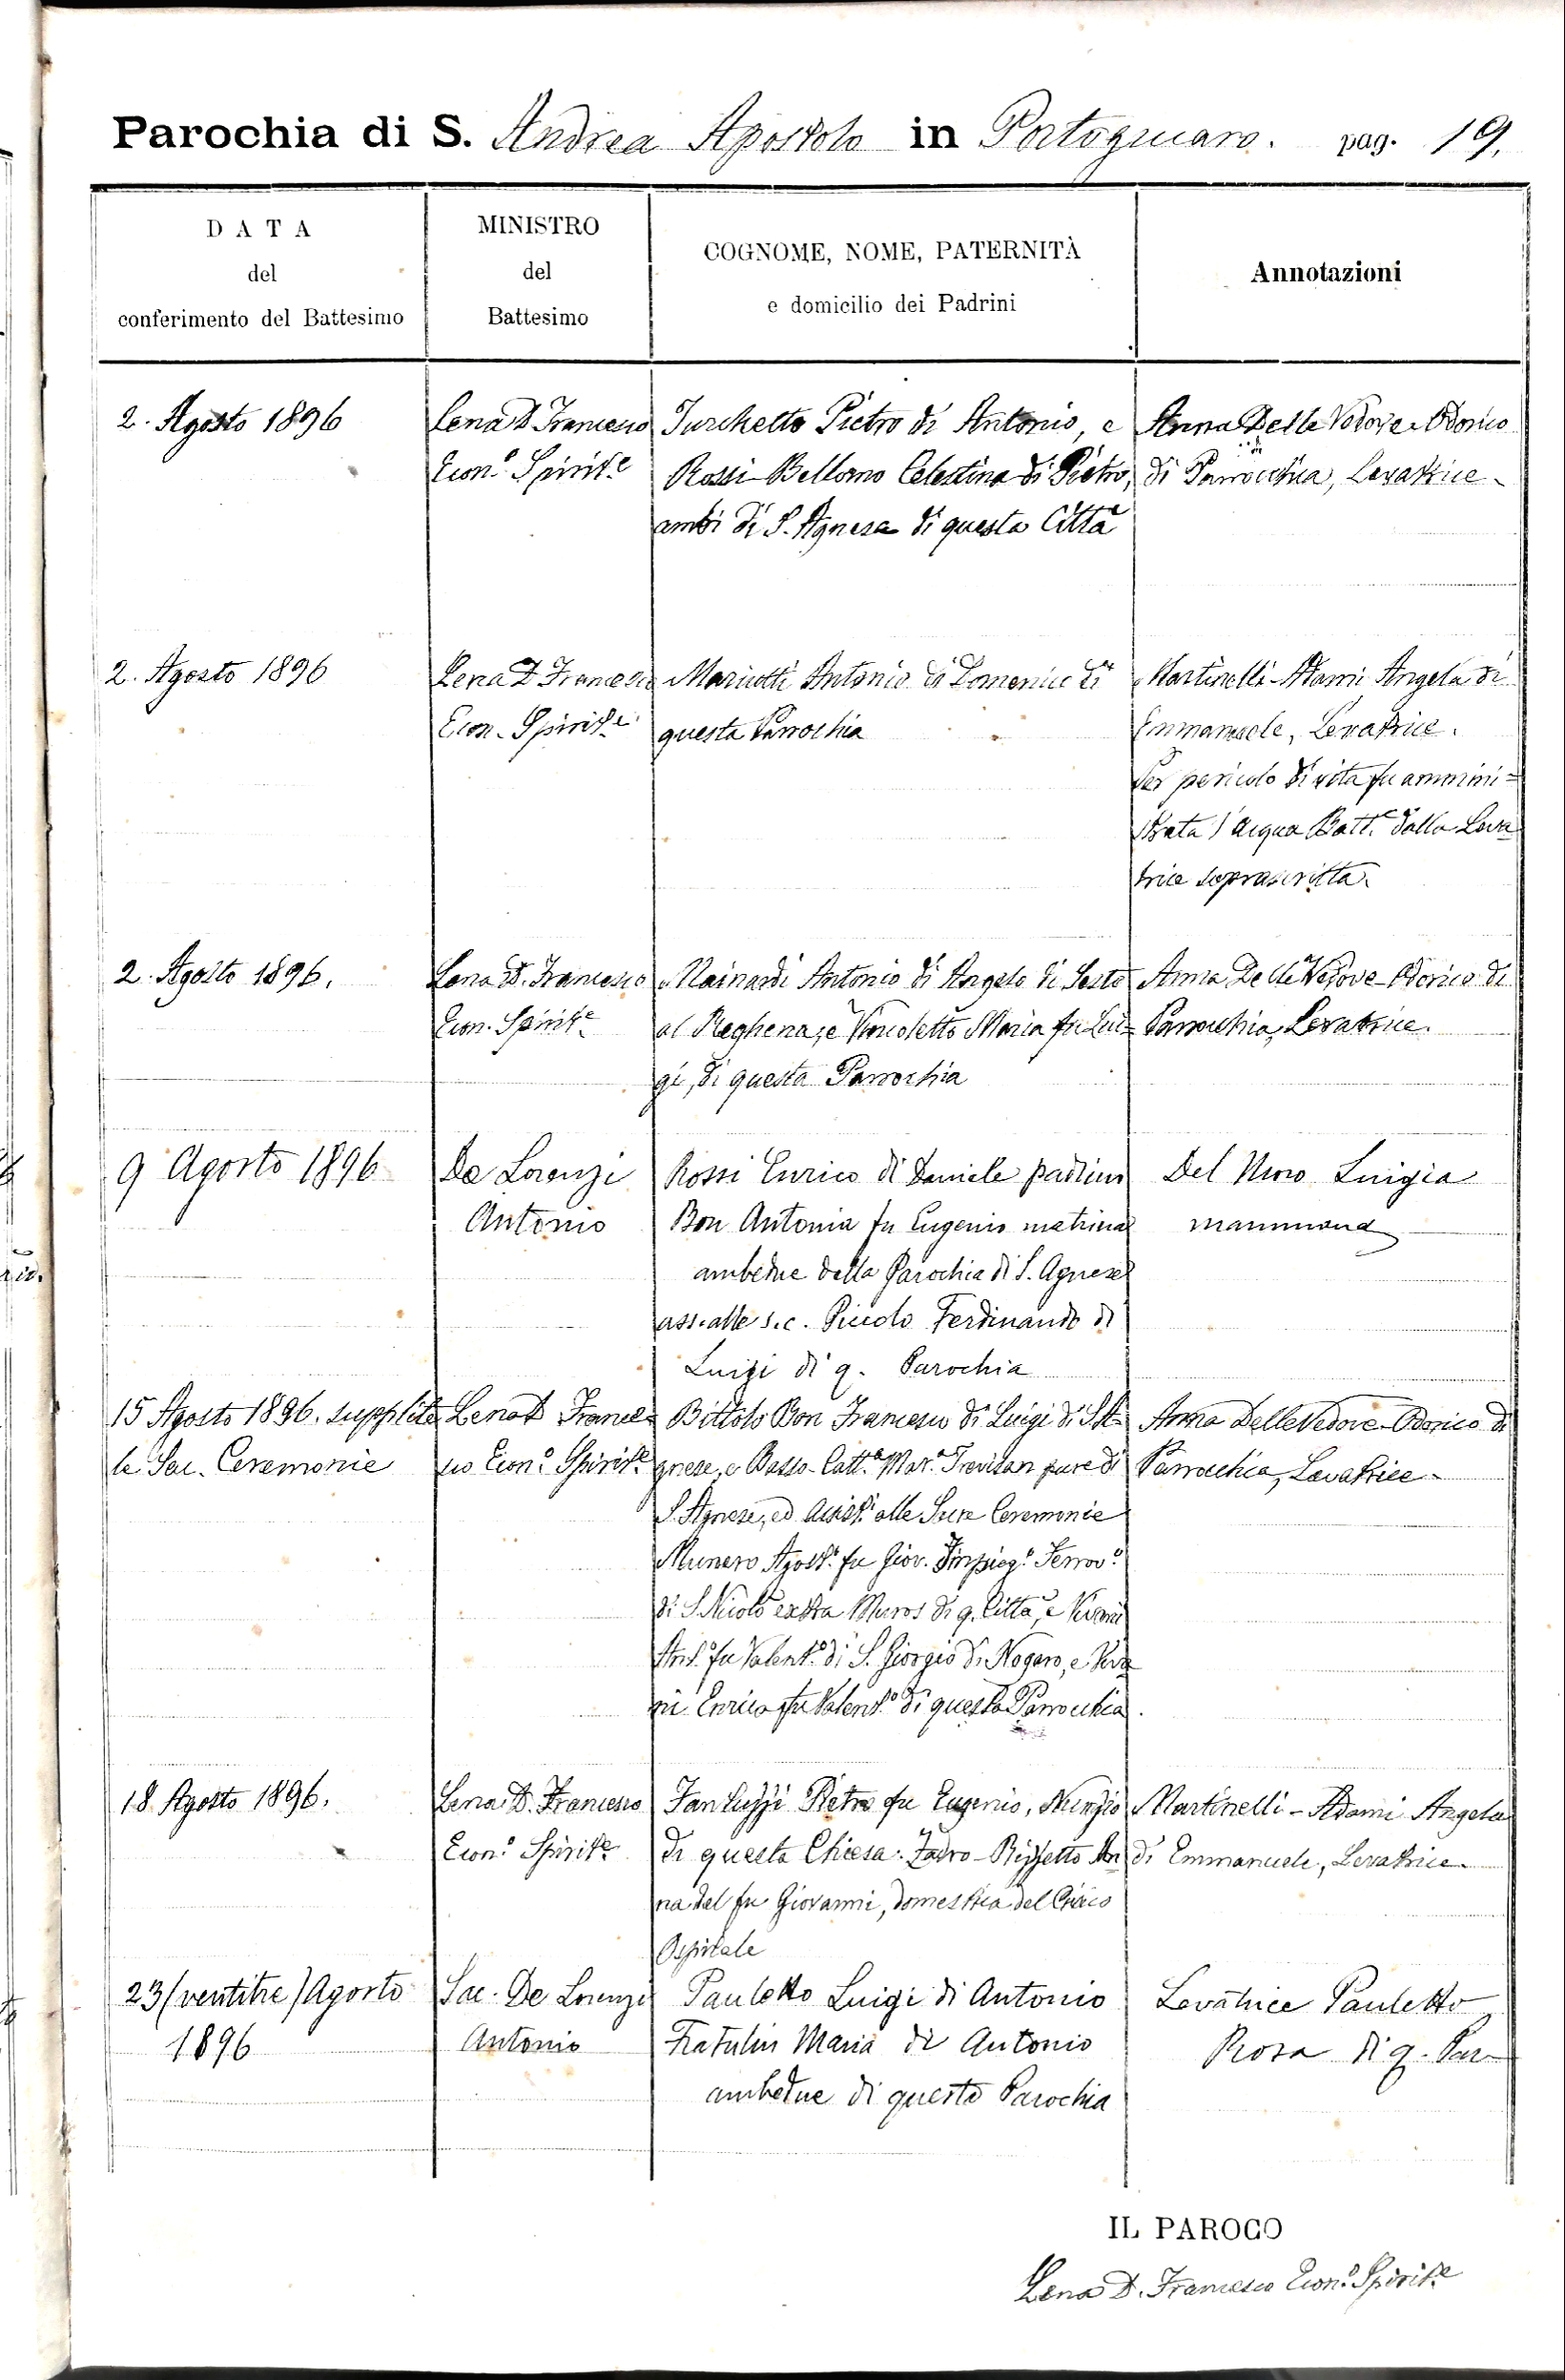 Parochia di S. Andrea Apostolo in Portogruaro. pag. 19.
DATA
del
conferimento del Battesimo
MINISTRO
del
Battesimo
COGNOME, NOME, PATERNITÀ
e domicilio dei Padrini
Annotazioni
2. Agosto 1896
Lena D. Francesco
Econ.o Spirit.e
Turchetto Pietro di Antonio, e
Rossi-Bellomo Celestina di Pietro,
ambi di S. Agnese di questa Città
Anna Delle Vedove-Odorico
di Parrocchia, Levatrice
2. Agosto 1896
Lena D. Francesco
Econ. Spirit.e
Mariutti Antonio di Domenico di
questa Parrochia
Martinelli-Adami Angela di
Emmanuele, Levatrice.
Per pericolo di vita fu ammini=
strata l'acqua Batt.e dalla Leva
trice soprascritta.
2. Agosto 1896.
Lena D. Francesco
Econ. Spirit.e
Mainardi Antonio di Angelo di Sesto
al Reghena, e Maria fu Lui=
gi, di questa Parrochia
Anna Delle Vedove-Odorico di
Parrocchia, Levatrice.
9 Agosto 1896
De Lorenzi
Antonio
Rossi Enrico di Daniele padrino
Bon Antonia fu Eugenio matrina
ambedue della Parochia di S. Agnese
ass. alle s. c. Piccolo Ferdinando di
Luigi di q. Parochia
Del Nino Luigia
mammana
15 Agosto 1896. supplite
le Sac. Ceremonie
Lena D. Frances
co Econ.o Spirit.e
Bittolo Bon Francesco di Luigi di S. A
gnese, e Basso-Catt.a Mar.a Trevisan pure di
S. Agnese, ed Assist.i alle Sacre Ceremonie
Munero Agost.o fu Giov. Impieg.o Ferrov.o
di S. Nicolò extra Muros di q. Città, e
Ant.o fu Valent.o di S. Giorgio di Nogaro, e
Enrico fu Valent.o di questa Parrocchia.
Anna Delle Vedove-Odorico di
Parrocchia, Levatrice
18 Agosto 1896.
Lena D. Francesco
Econ.o Spirit.e
Fantuzzi Pietro fu Eugenio, Nunzio
di questa Chiesa. Zadro-Bizzetto An
na del fu Giovanni, domestica del Civico
Ospitale
Martinelli-Adami Angela
di Emmanuele, Levatrice
23 (ventitre) Agosto
1896
Sac. De Lorenzi
Antonio
Pauletto Luigi di Antonio
Fratulin Maria di Antonio
ambedue di questa Parochia
Levatrice Pauletto
Rosa di q. Par
IL PAROCO
Lena D. Francesco Econ.o Spirit.e